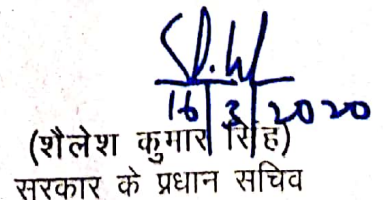 16/3/2020
(शैलेश कुमार सिंह)
सरकार के प्रधान सचिव